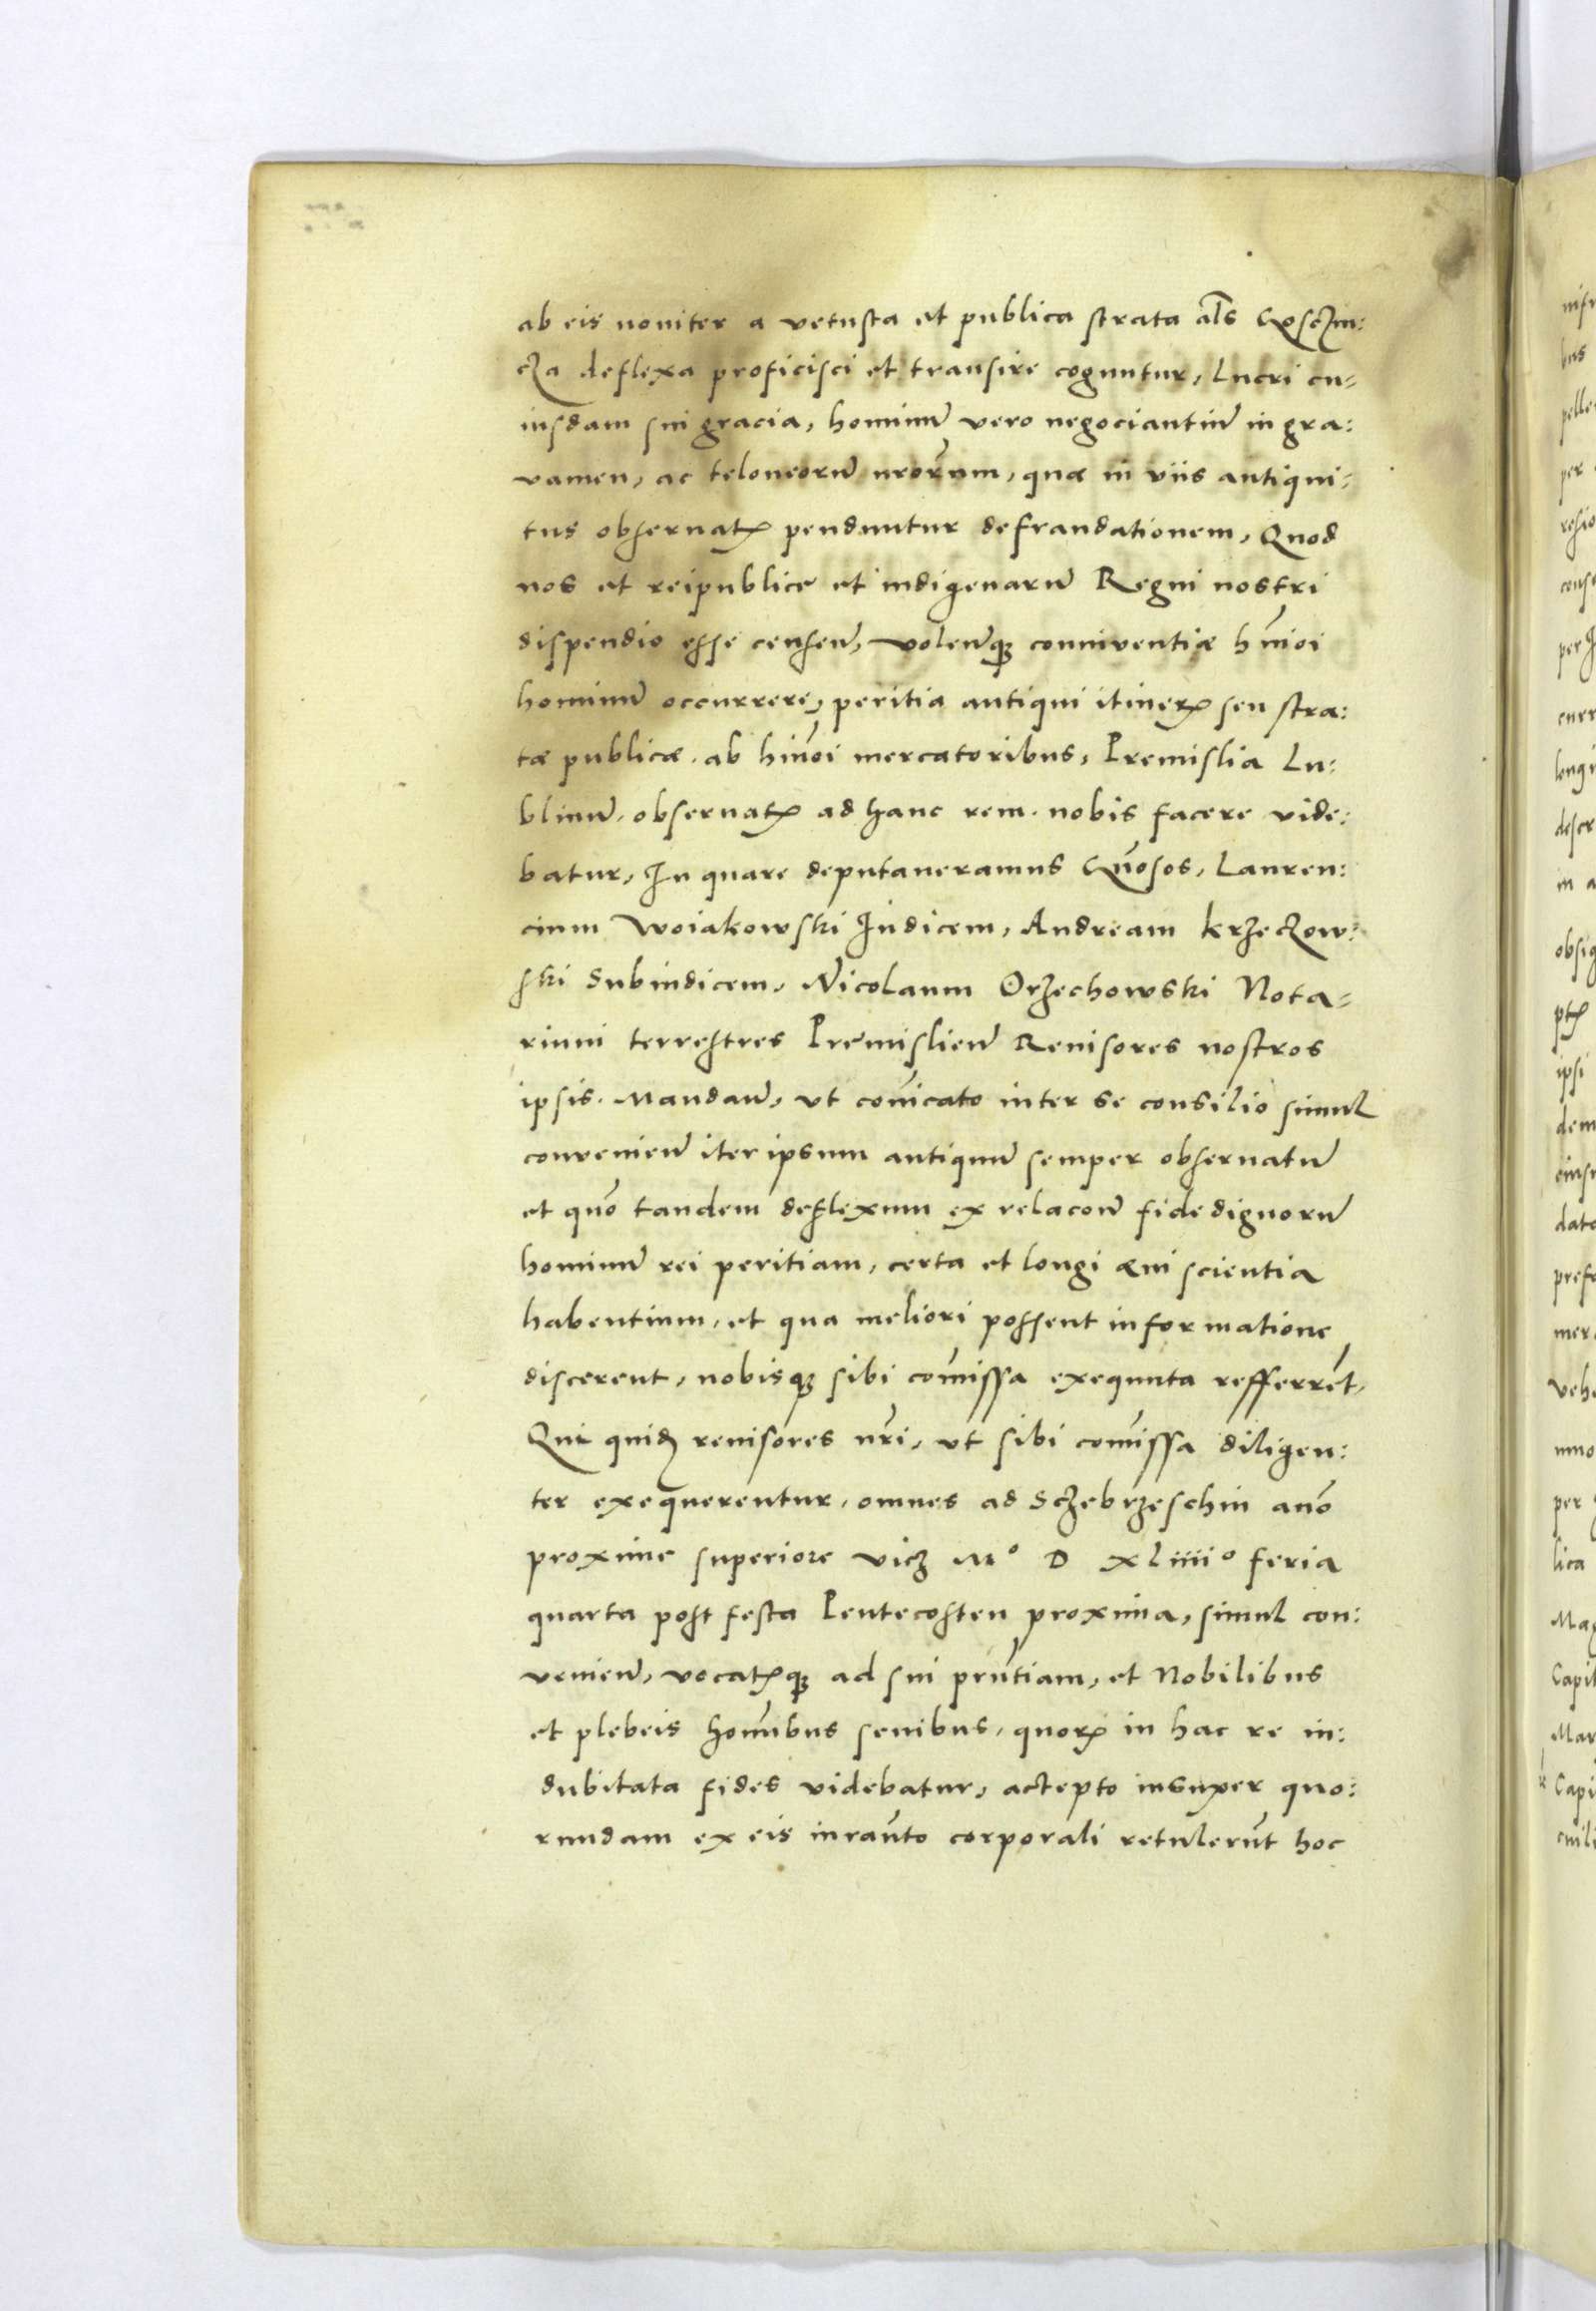 ab eis noviter a vetusta et publica strata al̃s Gosczin:
cza deflexa proficisci et transire coguntur, Lucri cu=
iusdam sui gracia, hominũ vero negociantiũ in gra:
vamen, ac teloneorũ nrõrum, quæ in viis antiqui=
tus obseruatꝭ penduntur defraudationem, Quod
nos et reipublice et indigenarũ Regni nostri
dispendio esse censeñ, voleñqꝫ conniventiæ hmõi
hominũ occurrere, peritia antiqui itinerꝭ seu stra:
tæ publicæ. ab hmõi mercatoribus, Premislia Lu:
blinũ, obseruatꝭ ad hanc rem. nobis facere vide:
batur, In quare deputaueramus Gñosos, Lauren:
cium Woiakowski Iudicem, Andream Krzeczow:
ski Subiudicem, Nicolaum Orzechowski Nota=
rium terrestres Premislieñ Reuisores nostros
ipsis. Mandañ, vt com̃icato inter se consilio simul
convenieñ iter ipsum antiquũ semper obseruatũ
et quõ tandem deflexum ex relacoñ fide dignorũ
hominũ rei peritiam, certa et longi æui scientia
habentium, et qua meliori possent informatione
discerent, nobisqꝫ sibi com̃issa exequuta refferrẽt,
Qui quidẽ reuisores nr̃i, vt sibi com̃issa diligen:
ter exequerentur, omnes ad Sczebrzeschin anõ
proxime superiore vicꝫ Mº D XLiiiiº feria
quarta post festa Pentecosten proxima, simul con:
venieñ, vocatꝭqꝫ ad sui prñtiam, et Nobilibus
et plebeis hom̃ibus senibus, quorꝭ in hac re in:
dubitata fides videbatur, accepto insuper quo:
rundam ex eis iurañto corporali retulerũt hoc